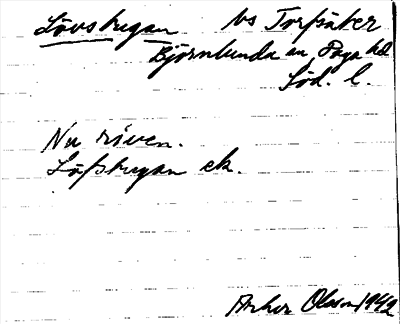 Lövstugan bs Torpåker
Björnlunda sn Daga hd
Söd. l.
Nu riven.
Löfstugan ek.
Olsson 1942